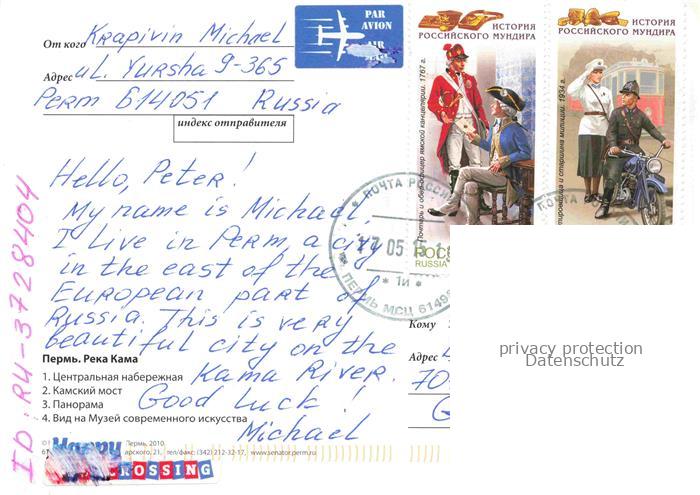 От кого Krapivin Michael
Адрес ul. Yursha 9-365
Perm 614051 Russia
индекс отправителя
PAR
AVION
ИСТОРИЯ
РОССИЙСКОГО МУНДИРА
ИСТОРИЯ
РОССИЙСКОГО МУНДИРА
Почтарь и обер-офицер ямской канцелярии. 1767 г.
и старшина милиции. 1934 г.
Hello, Peter!
My name is Michael,
I live in Perm, a city
in the east of the
European part of
Russia. This is very
beautiful city on the
Kama River.
Good Luck!
Michael
ID: RU-3728404
ПОЧТА РОССИИ
17 05 15 1
* 1и *
ПЕРМЬ МСЦ 61499
ПОЧТА
РОСС
RUSSIA
Кому
Адрес
70
G
privacy protection
Datenschutz
Пермь. Река Кама
1. Центральная набережная
2. Камский мост
3. Панорама
4. Вид на Музей современного искусства
Пермь, 2010
арского, 21, тел/факс: (342) 212-32-17, www.senator.perm.ru
Happy
CROSSING